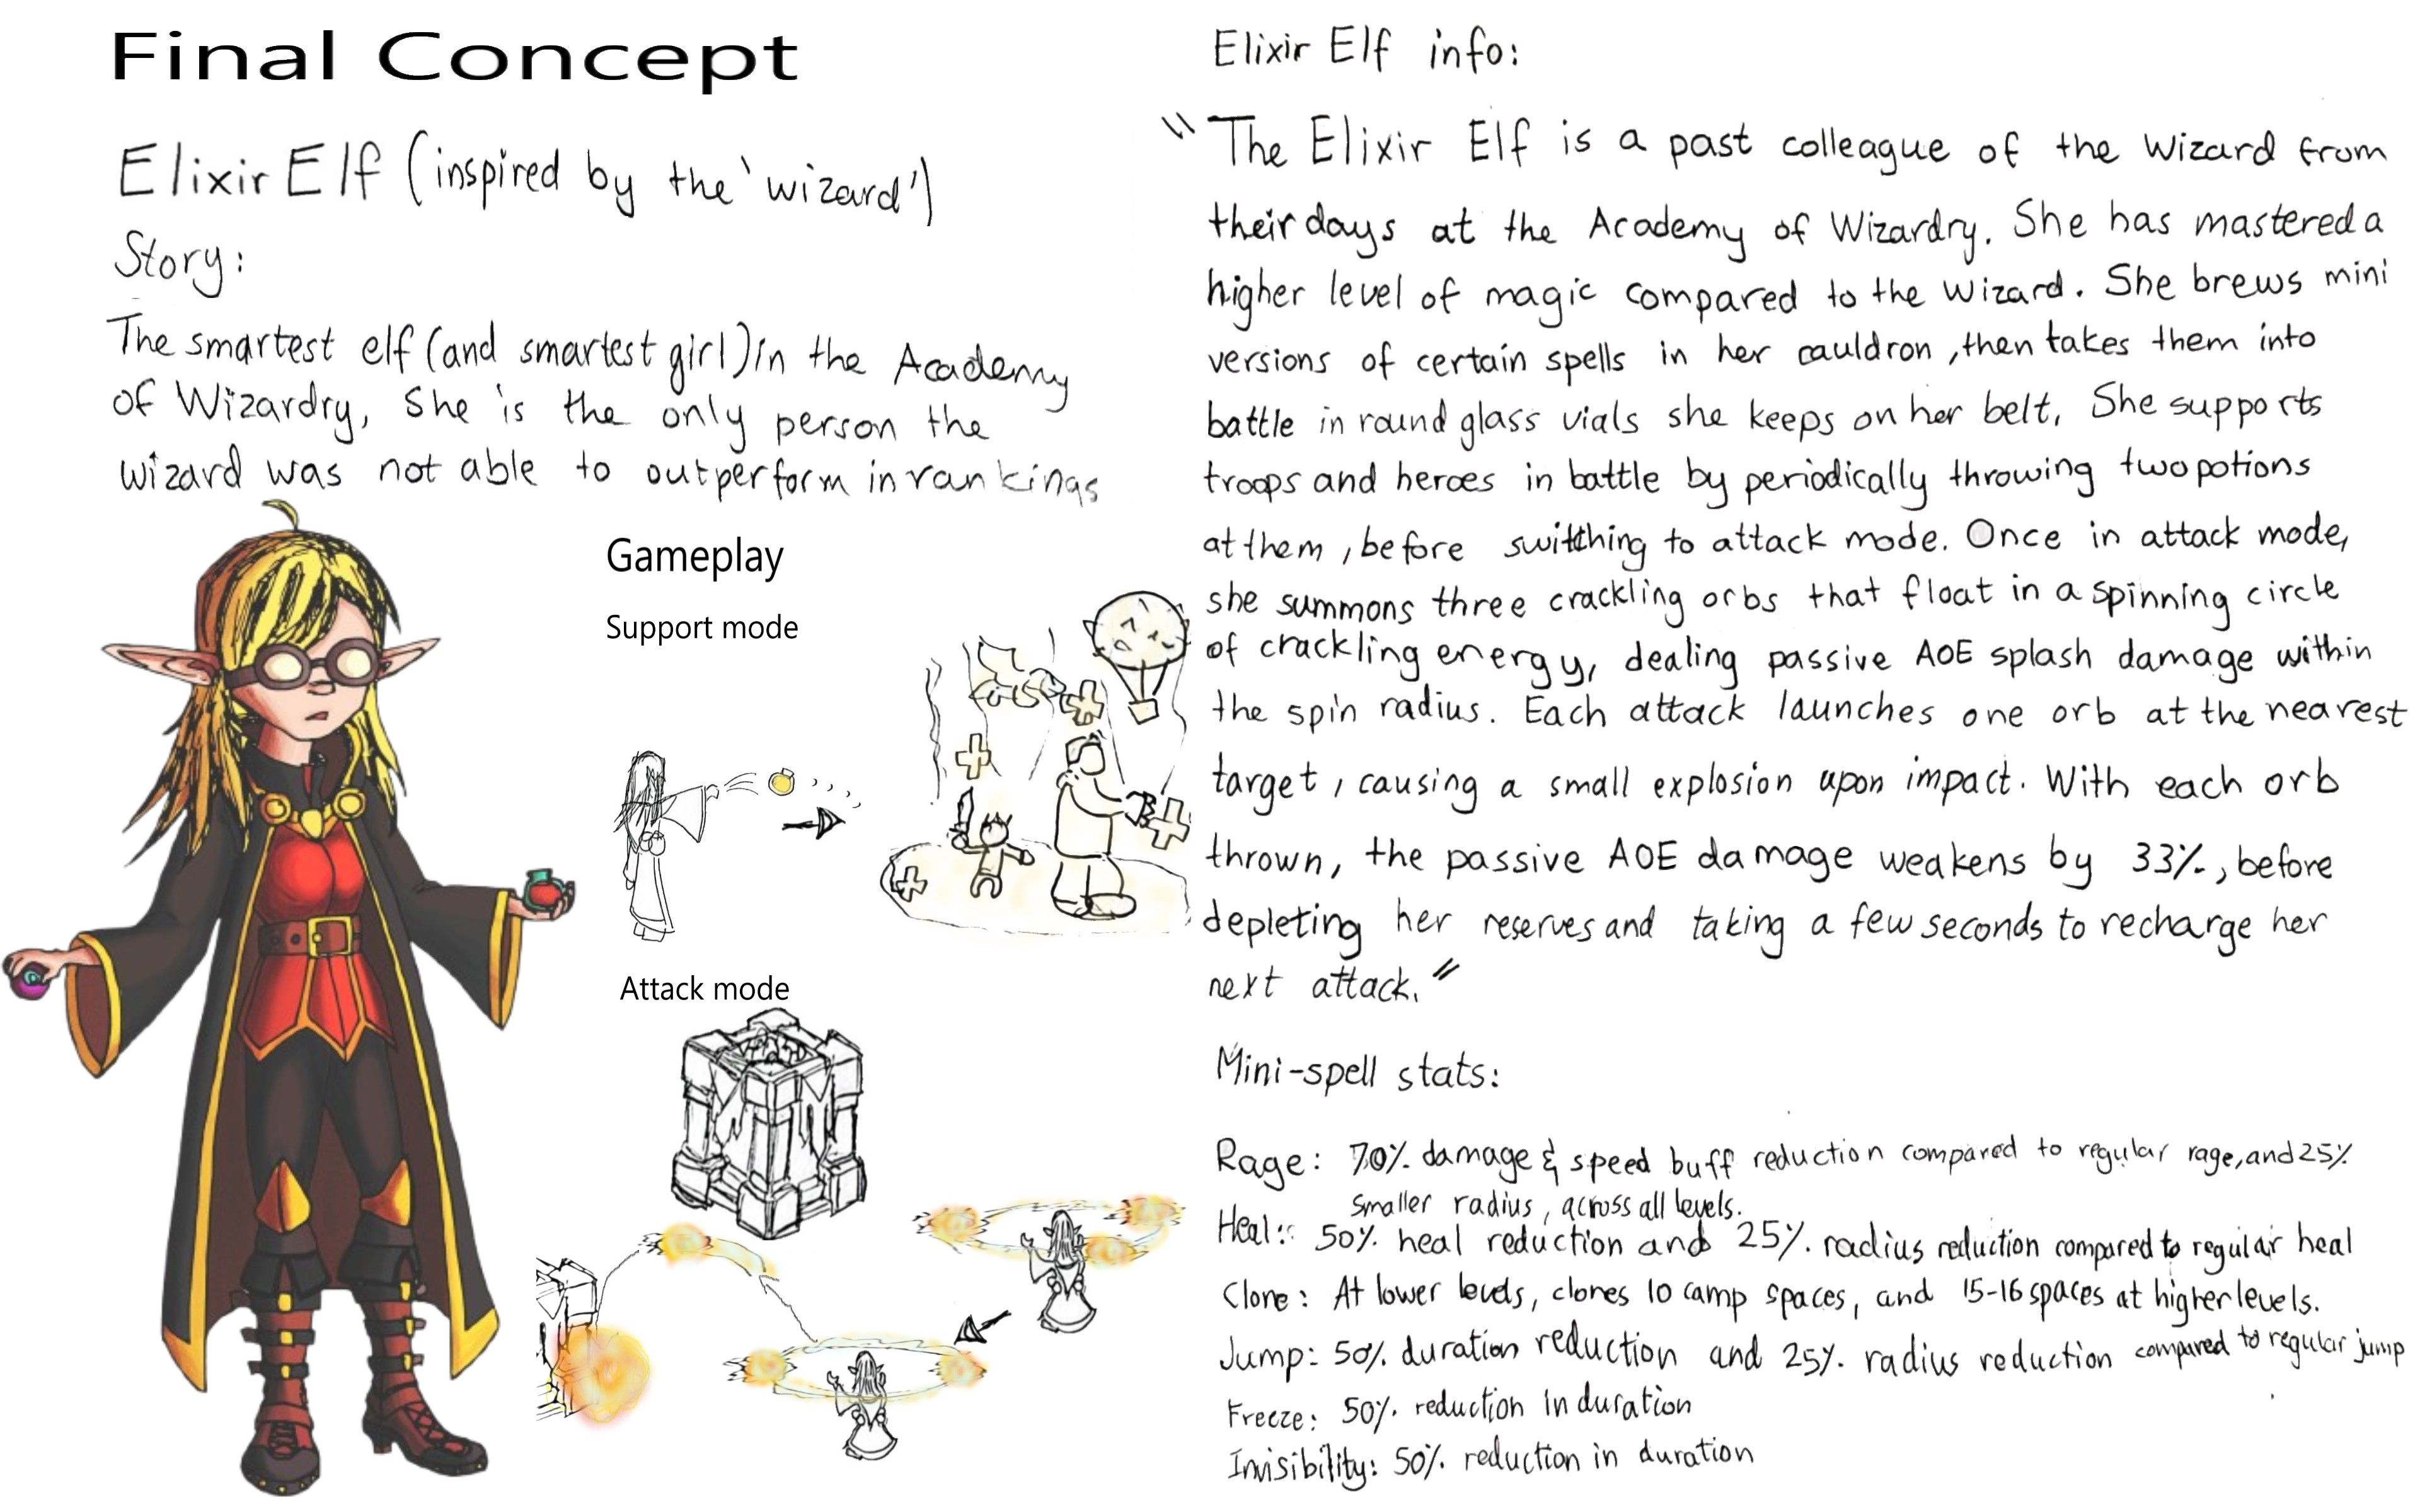 Final Concept
Elixir Elf (inspired by the 'wizard')
Story:
The smartest elf (and smartest girl) in the Academy
of Wizardry, She is the only person the
wizard was not able to outperform in rankings
Gameplay
Support mode
Attack mode
Elixir Elf info:
"The Elixir Elf is a past colleague of the Wizard from
their days at the Academy of Wizardry. She has mastered a
higher level of magic compared to the Wizard. She brews mini
versions of certain spells in her cauldron, then takes them into
battle in round glass vials she keeps on her belt. She supports
troops and heroes in battle by periodically throwing two potions
at them, before switching to attack mode. Once in attack mode,
she summons three crackling orbs that float in a spinning circle
of crackling energy, dealing passive AOE splash damage within
the spin radius. Each attack launches one orb at the nearest
target, causing a small explosion upon impact. With each orb
thrown, the passive AOE damage weakens by 33%, before
depleting her reserves and taking a few seconds to recharge her
next attack."
Mini-spell stats:
Rage: 70% damage & speed buff reduction compared to regular rage, and 25%
smaller radius, across all levels.
Heal: 50% heal reduction and 25% radius reduction compared to regular heal
Clone: At lower levels, clones 10 camp spaces, and 15-16 spaces at higher levels.
Jump: 50% duration reduction and 25% radius reduction compared to regular jump
Freeze: 50% reduction in duration
Invisibility: 50% reduction in duration